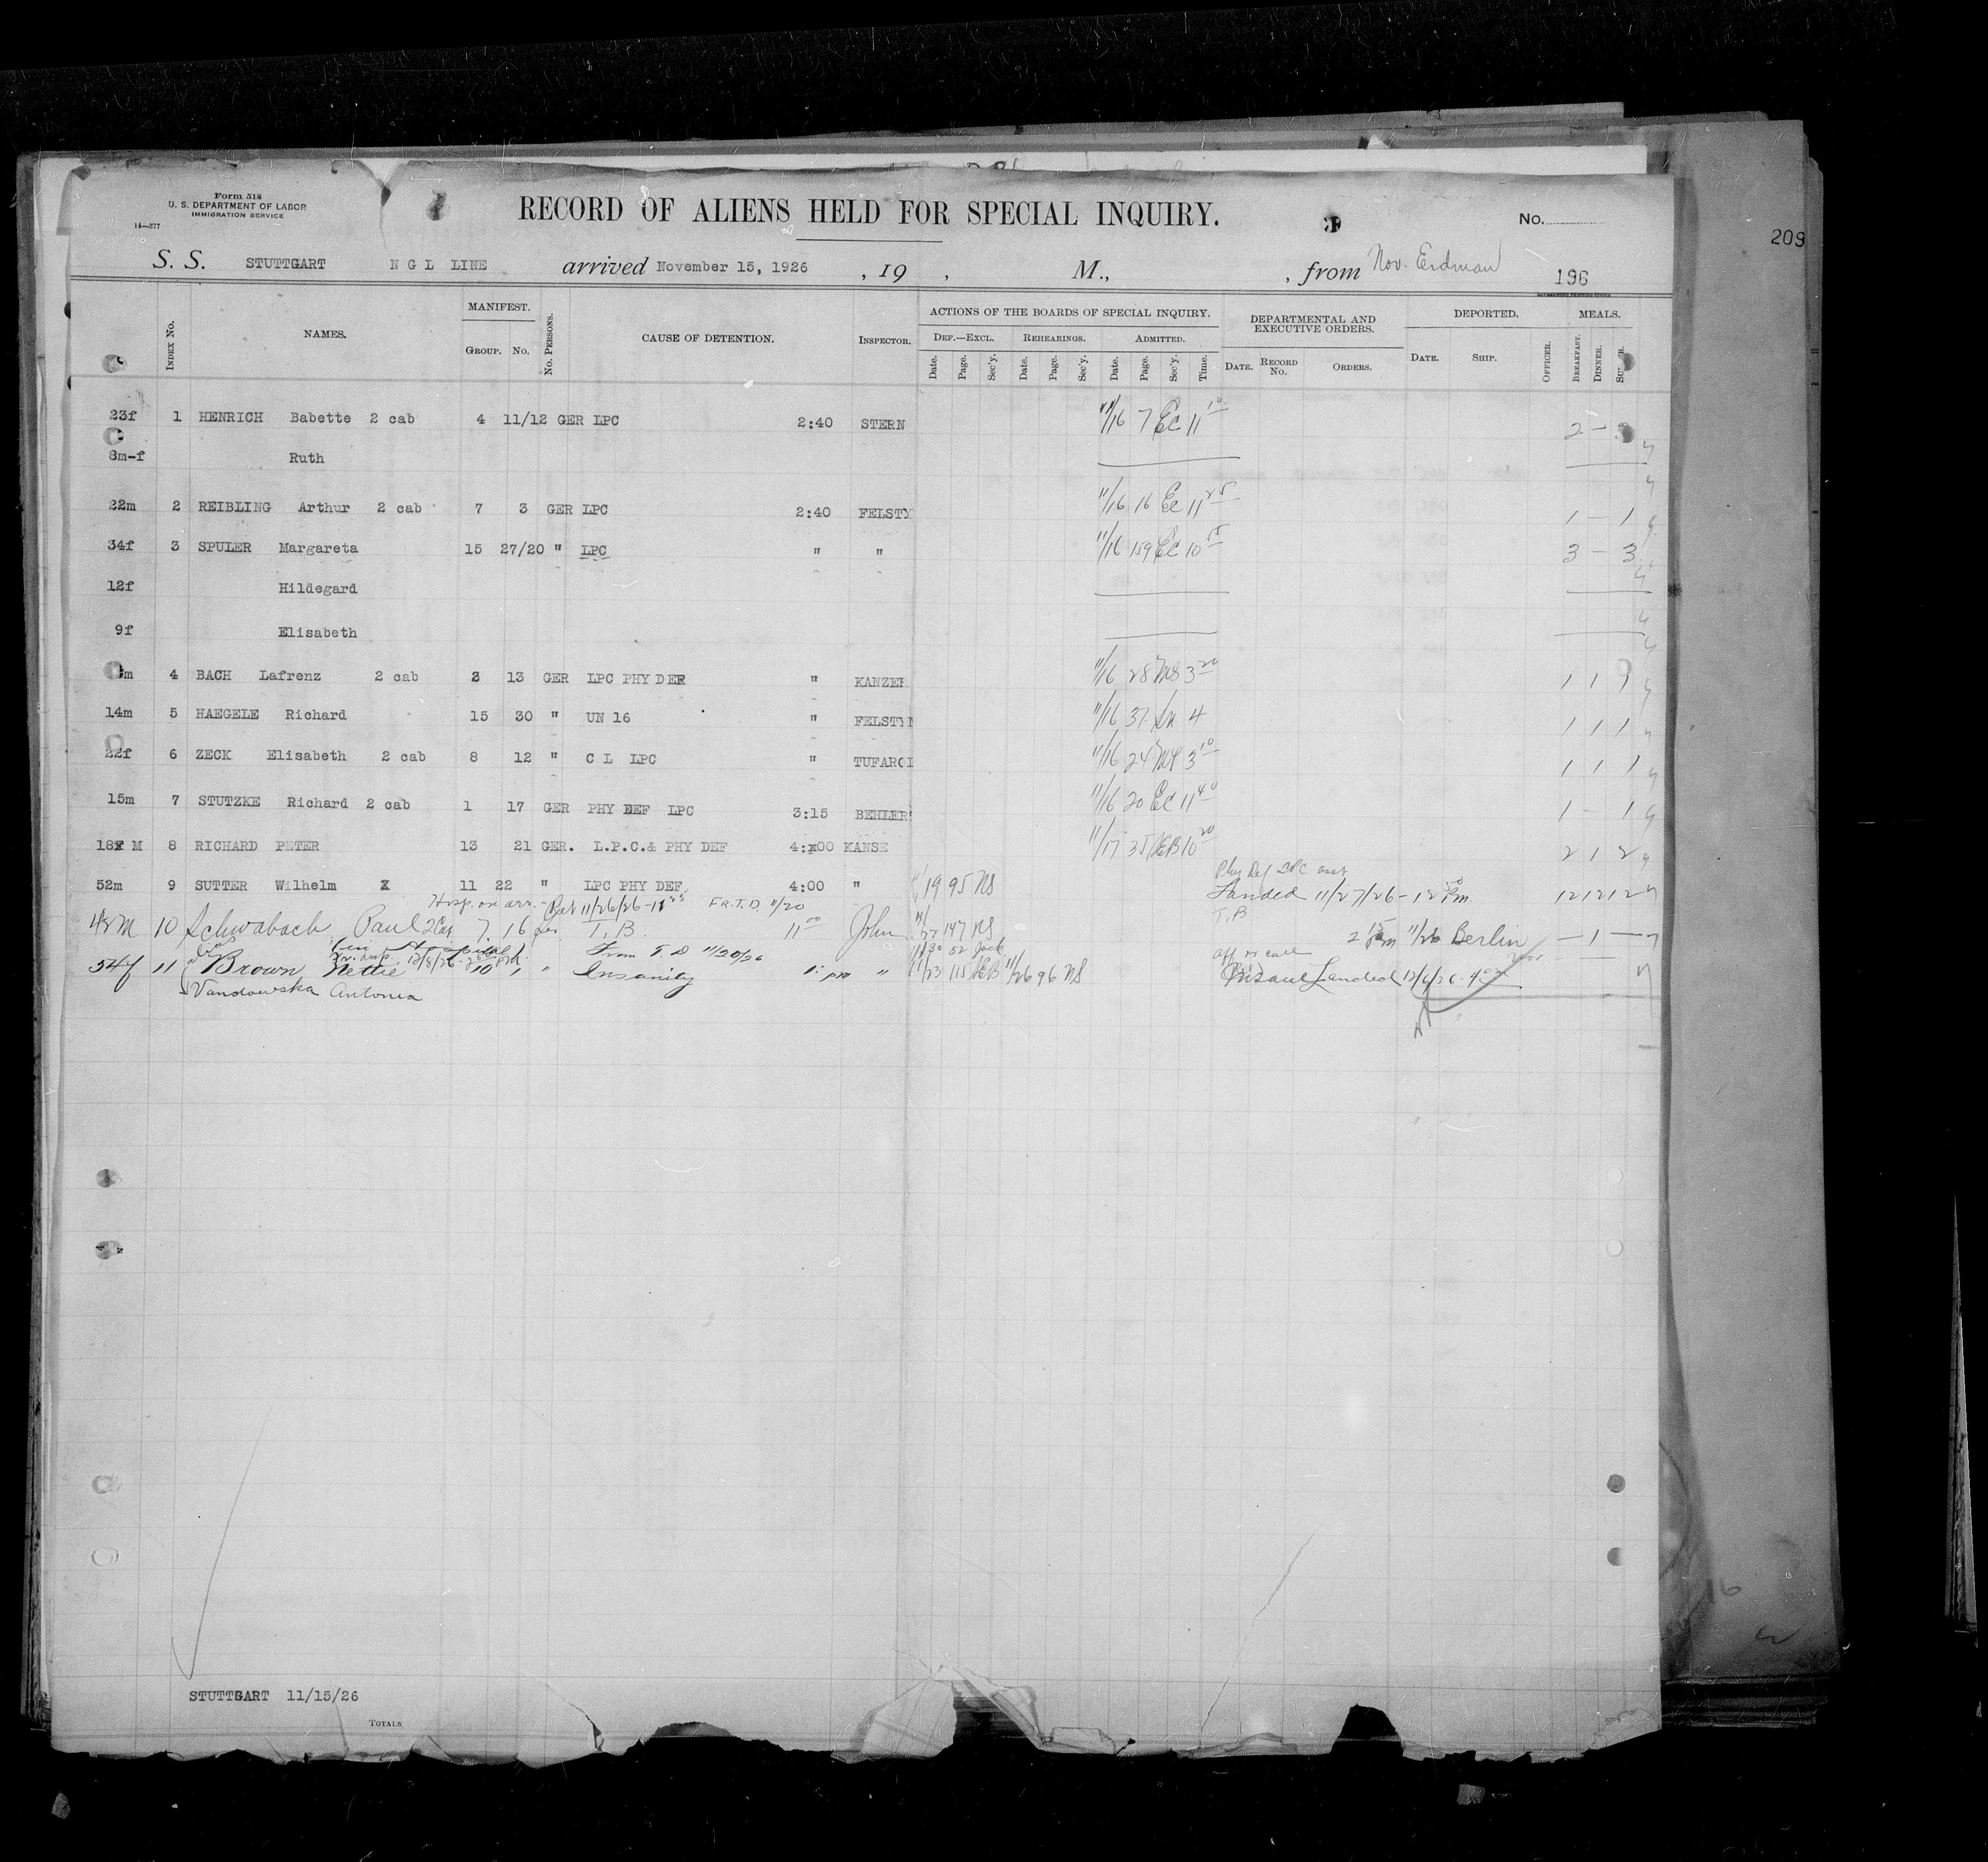 Form 518
U. S. DEPARTMENT OF LABOR
IMMIGRATION SERVICE
14—377
RECORD OF ALIENS HELD FOR SPECIAL INQUIRY.
No.
209
S. S. STUTTGART N G L LINE arrived November 15, 1926 , 19 , M., , from Nov. Erdman 196
INDEX No. NAMES. MANIFEST. GROUP. No. No. PERSONS. CAUSE OF DETENTION. INSPECTOR. ACTIONS OF THE BOARDS OF SPECIAL INQUIRY. DEPARTMENTAL AND EXECUTIVE ORDERS. DEPORTED. MEALS.
DEF.—EXCL. REHEARINGS. ADMITTED.
Date. Page. Sec'y. Date. Page. Sec'y. Date. Page. Sec'y. Time. DATE. RECORD No. ORDERS. DATE. SHIP. OFFICER. BREAKFAST. DINNER.
23f 1 HENRICH Babette 2 cab 4 11/12 GER LPC 2:40 STERN 11/16 7 EC 11 10 2 —
8m-f Ruth
22m 2 REIBLING Arthur 2 cab 7 3 GER LPC 2:40 FELSTY 11/16 16 EC 11 25 1 — 1
34f 3 SPULER Margareta 15 27/20 " LPC " " 11/16 159 EC 10 55 3 — 3
12f Hildegard
9f Elisabeth
m 4 BACH Lafrenz 2 cab 3 13 GER LPC PHY DEF " KANZER 11/16 28 MS 3 20 1 1 1
14m 5 HAEGELE Richard 15 30 " UN 16 " FELSTYN 11/16 37 4 1 1 1
22f 6 ZECK Elisabeth 2 cab 8 12 " C L LPC " TUFAROL 11/16 24 MS 3 10 1 1 1
15m 7 STUTZKE Richard 2 cab 1 17 GER PHY DEF LPC 3:15 BEHLER 11/16 20 EC 11 40 1 — 1
18 M 8 RICHARD PETER 13 21 GER. L.P.C.& PHY DEF 4:00 KANSE 11/17 35 HEB 10 20 2 1 2
Phy Def LPC
52m 9 SUTTER Wilhelm X 11 22 " LPC PHY DEF. 4:00 " 11/19 95 NS Landed 11/27/26 - 12 30 Pm. 12 12 12
Hosp. on arr. - 11/26/26 - 11 25 Fr. T. D. 11/20
T. B
48m 10 Schwabach Paul 2 Cab 7 16 Ger T. B. 11 00 John 11/22 147 NS 2 15 Pm 11/26 Berlin — 1 —
(in Hospital) From T. D 11/20/26 11/30 52 Jack
54f 11 Brown Nettie 10 1 " Insanity 1: pm " 11/23 115 HEB 11/26 96 NS Insane Landed 12/6/26 - 4
Vandowska Antonia
STUTTGART 11/15/26
TOTALS